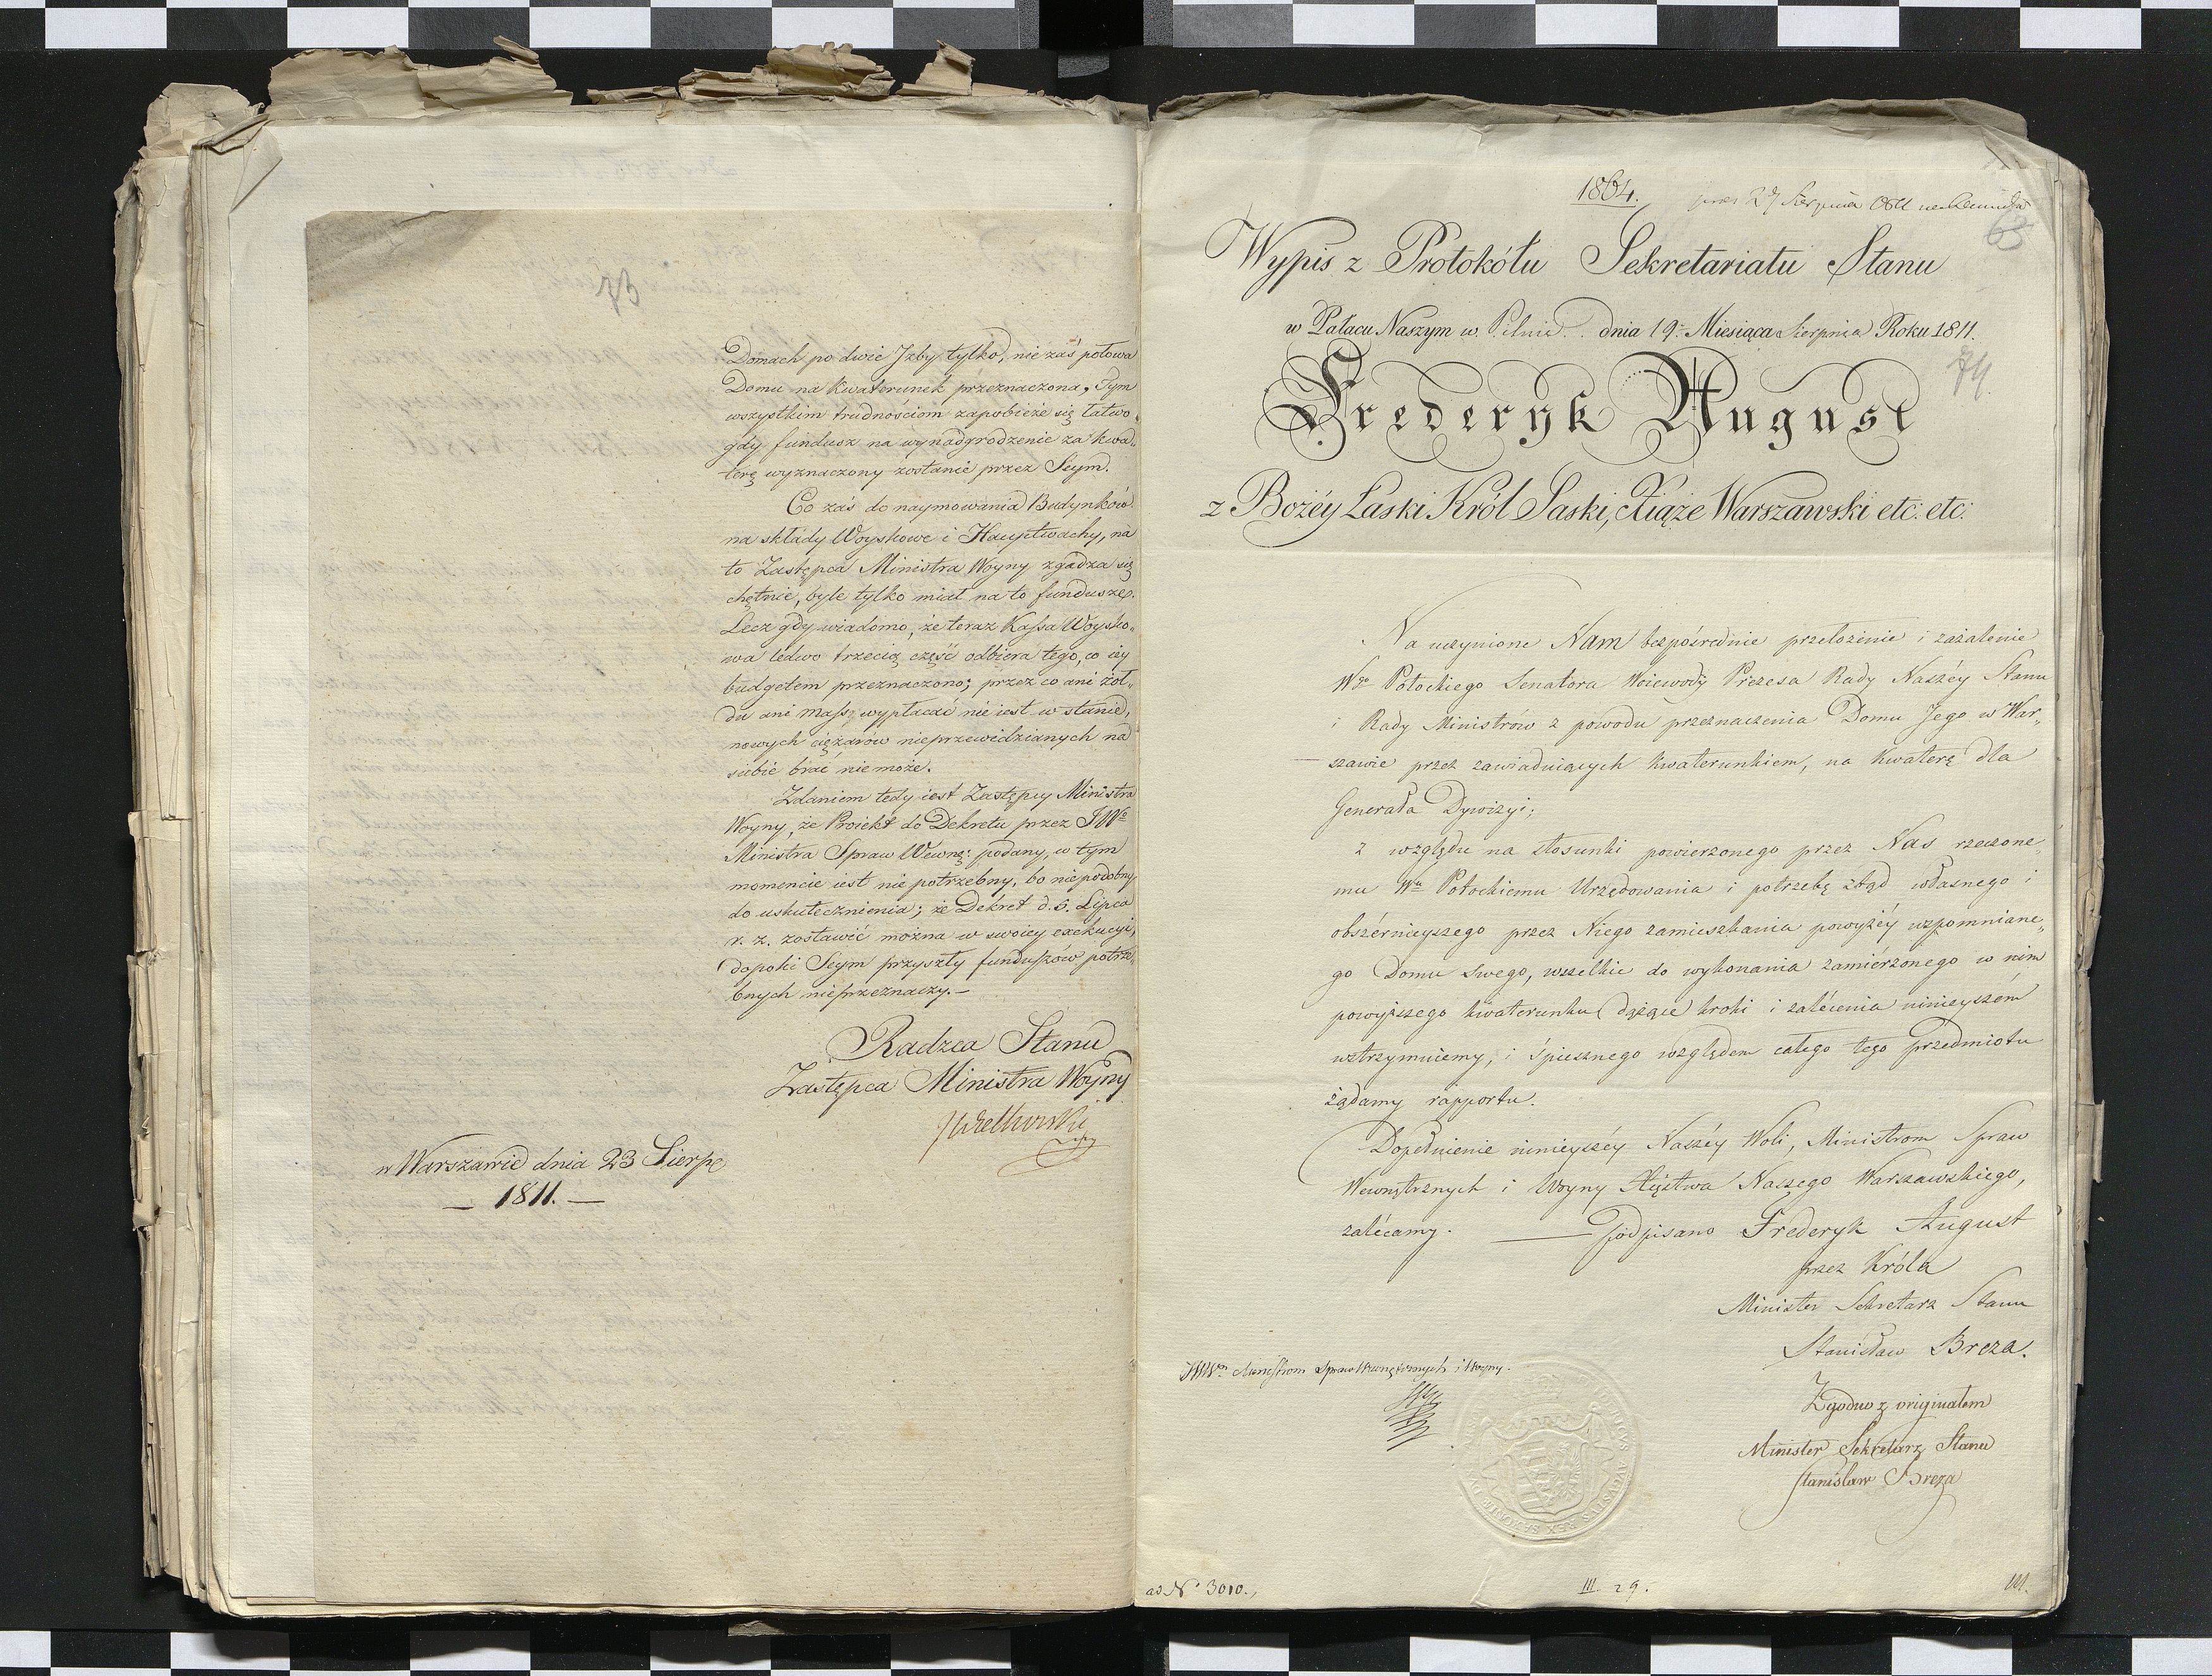 73
Domach po dwie Jzby tylko, nie zaś połowa
Domu na kwaterunek przeznaczona, Tym
wszystkim trudnościom zapobieże się łatwo,
gdy fundusz na wynadgrodzenie za kwa„
terę wyznaczony zostanie przez Seym.
Co zaś do naymowania Budynków
na składy Woyskowe i Hauptwachy, na
to Zastępca Ministra Woyny zgadza się
chętnie, byle tylko miał na to fundusze.
Lecz gdy wiadomo, że teraz Kassa Woysko„
wa ledwo trzecią część odbiera tego, co iey
budgetem przeznaczono; przez co ani żoł„
du ani massy wypłacać nie iest w stanie,
nowych ciężarów nieprzewidzianych na
siebie brać nie może.
Zdaniem tedy iest Zastępcy Ministra
Woyny, że Proiekt do Dekretu przez JWo
Ministra Spraw Wewnę: podany, w tym
momencie iest nie potrzebny, bo niepodobny
do uskutecznienia; że Dekret d. 6. Lipca
r. z. zostawić można w swoiey exekucyi,
dopoki Seym przyszły funduszów potrze„
bnych nieprzeznaczy.—
Radzca Stanu
Zastępca Ministra Woyny
w Warszawie dnia 23 Sierpe
— 1811. —
1864.
27 Sierpnia 1811
63
Wypis z Protokółu Sekretariatu Stanu
w Pałacu Naszym w. Pilnie . dnia 19: Miesiąca Sierpnia Roku 1811.
74.
Frederyk August
z Bożéy Łaski Król Saski, Xiąże Warszawski etc. etc:
Na uczynione Nam bezpośrednie przełożenie i zażalenie
Wgo Potockiego Senatora Woiewody Prezesa Rady Naszéy Stanu
i Rady Ministrów z powodu przeznaczenia Domu Jego w War„
szawie przez zawiaduiących kwaterunkiem, na kwaterę dla
Generała Dywizyi;
z względu na stosunki powierzonego przez Nas rzeczone„
mu Wu Potockiemu Urzędowania i potrzebę ztąd własnego i
obszérnieyszego przez Niego zamieszkania powyżéy wspomniane„
go Domu swego, wszelkie do wykonania zamierzonego w nim
powyższego kwaterunku dążące kroki i zalécenia ninieyszém
wstrzymuiemy, i śpiesznego względem całego tego przedmiotu
żądamy rapportu.
Dopełnienie ninieyszéy Naszéy Woli, Ministrom Spraw
Wewnętrznych i Woyny Xięstwa Naszego Warszawskiego,
zalécamy. — Podpisano Frederyk August
przez Króla
Minister Sekretarz Stanu
Stanisław Breza.
JWWm Ministrom Spraw Wewnętrznych i Woyny.
Zgodno z originałem
Minister Sekretarz Stanu
Stanisław Breza
ad No 3010.,
III. 29.